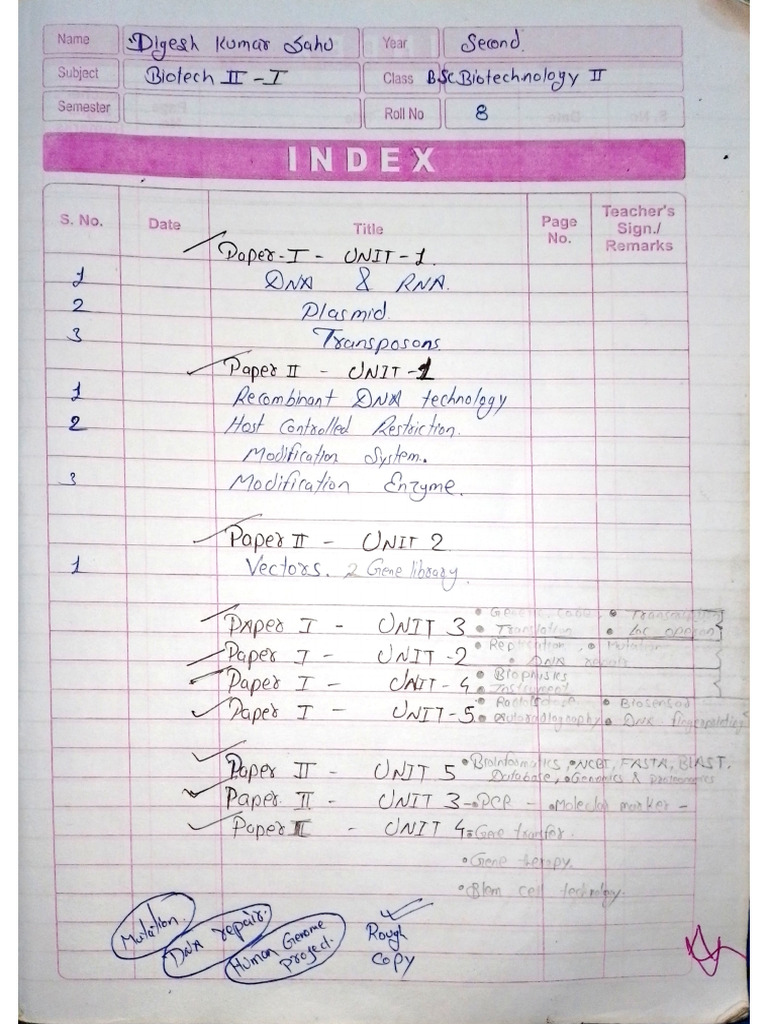 Name Digesh Kumar Sahu Year Second.
Subject Biotech II - I Class BSc Biotechnology II
Semester Roll No 8
INDEX
S. No. Date Title Page No. Teacher's Sign./ Remarks
Paper-I - UNIT-1
1 DNA & RNA.
2 Plasmid.
3 Transposons
Paper II - UNIT-1
1 Recombinant DNA technology
2 Host Controlled Restriction.
Modification System.
3 Modification Enzyme.
Paper II - UNIT 2
1 Vectors. 2 Gene library.
• Genetic Code, • Transcription
Paper I - UNIT 3 • Translation • Lac operon
• Replication, • Mutation
Paper I - UNIT-2 • DNA repair
• Biophisics
Paper I - UNIT-4 • Instrument
• Biosensor
Paper I - UNIT-5 • Autoradiography • DNA fingerprinting
• Bioinformatics, • NCBI, FASTA, BLAST,
Paper II - UNIT 5 Database, • Genomics & Proteomics
Paper II - UNIT 3 - • PCR - • Molecular marker -
Paper II - UNIT 4 • Gene transfer.
• Gene therapy.
• Stem cell technology.
Mutation.
DNA repair.
Human Genome project.
Rough
copy